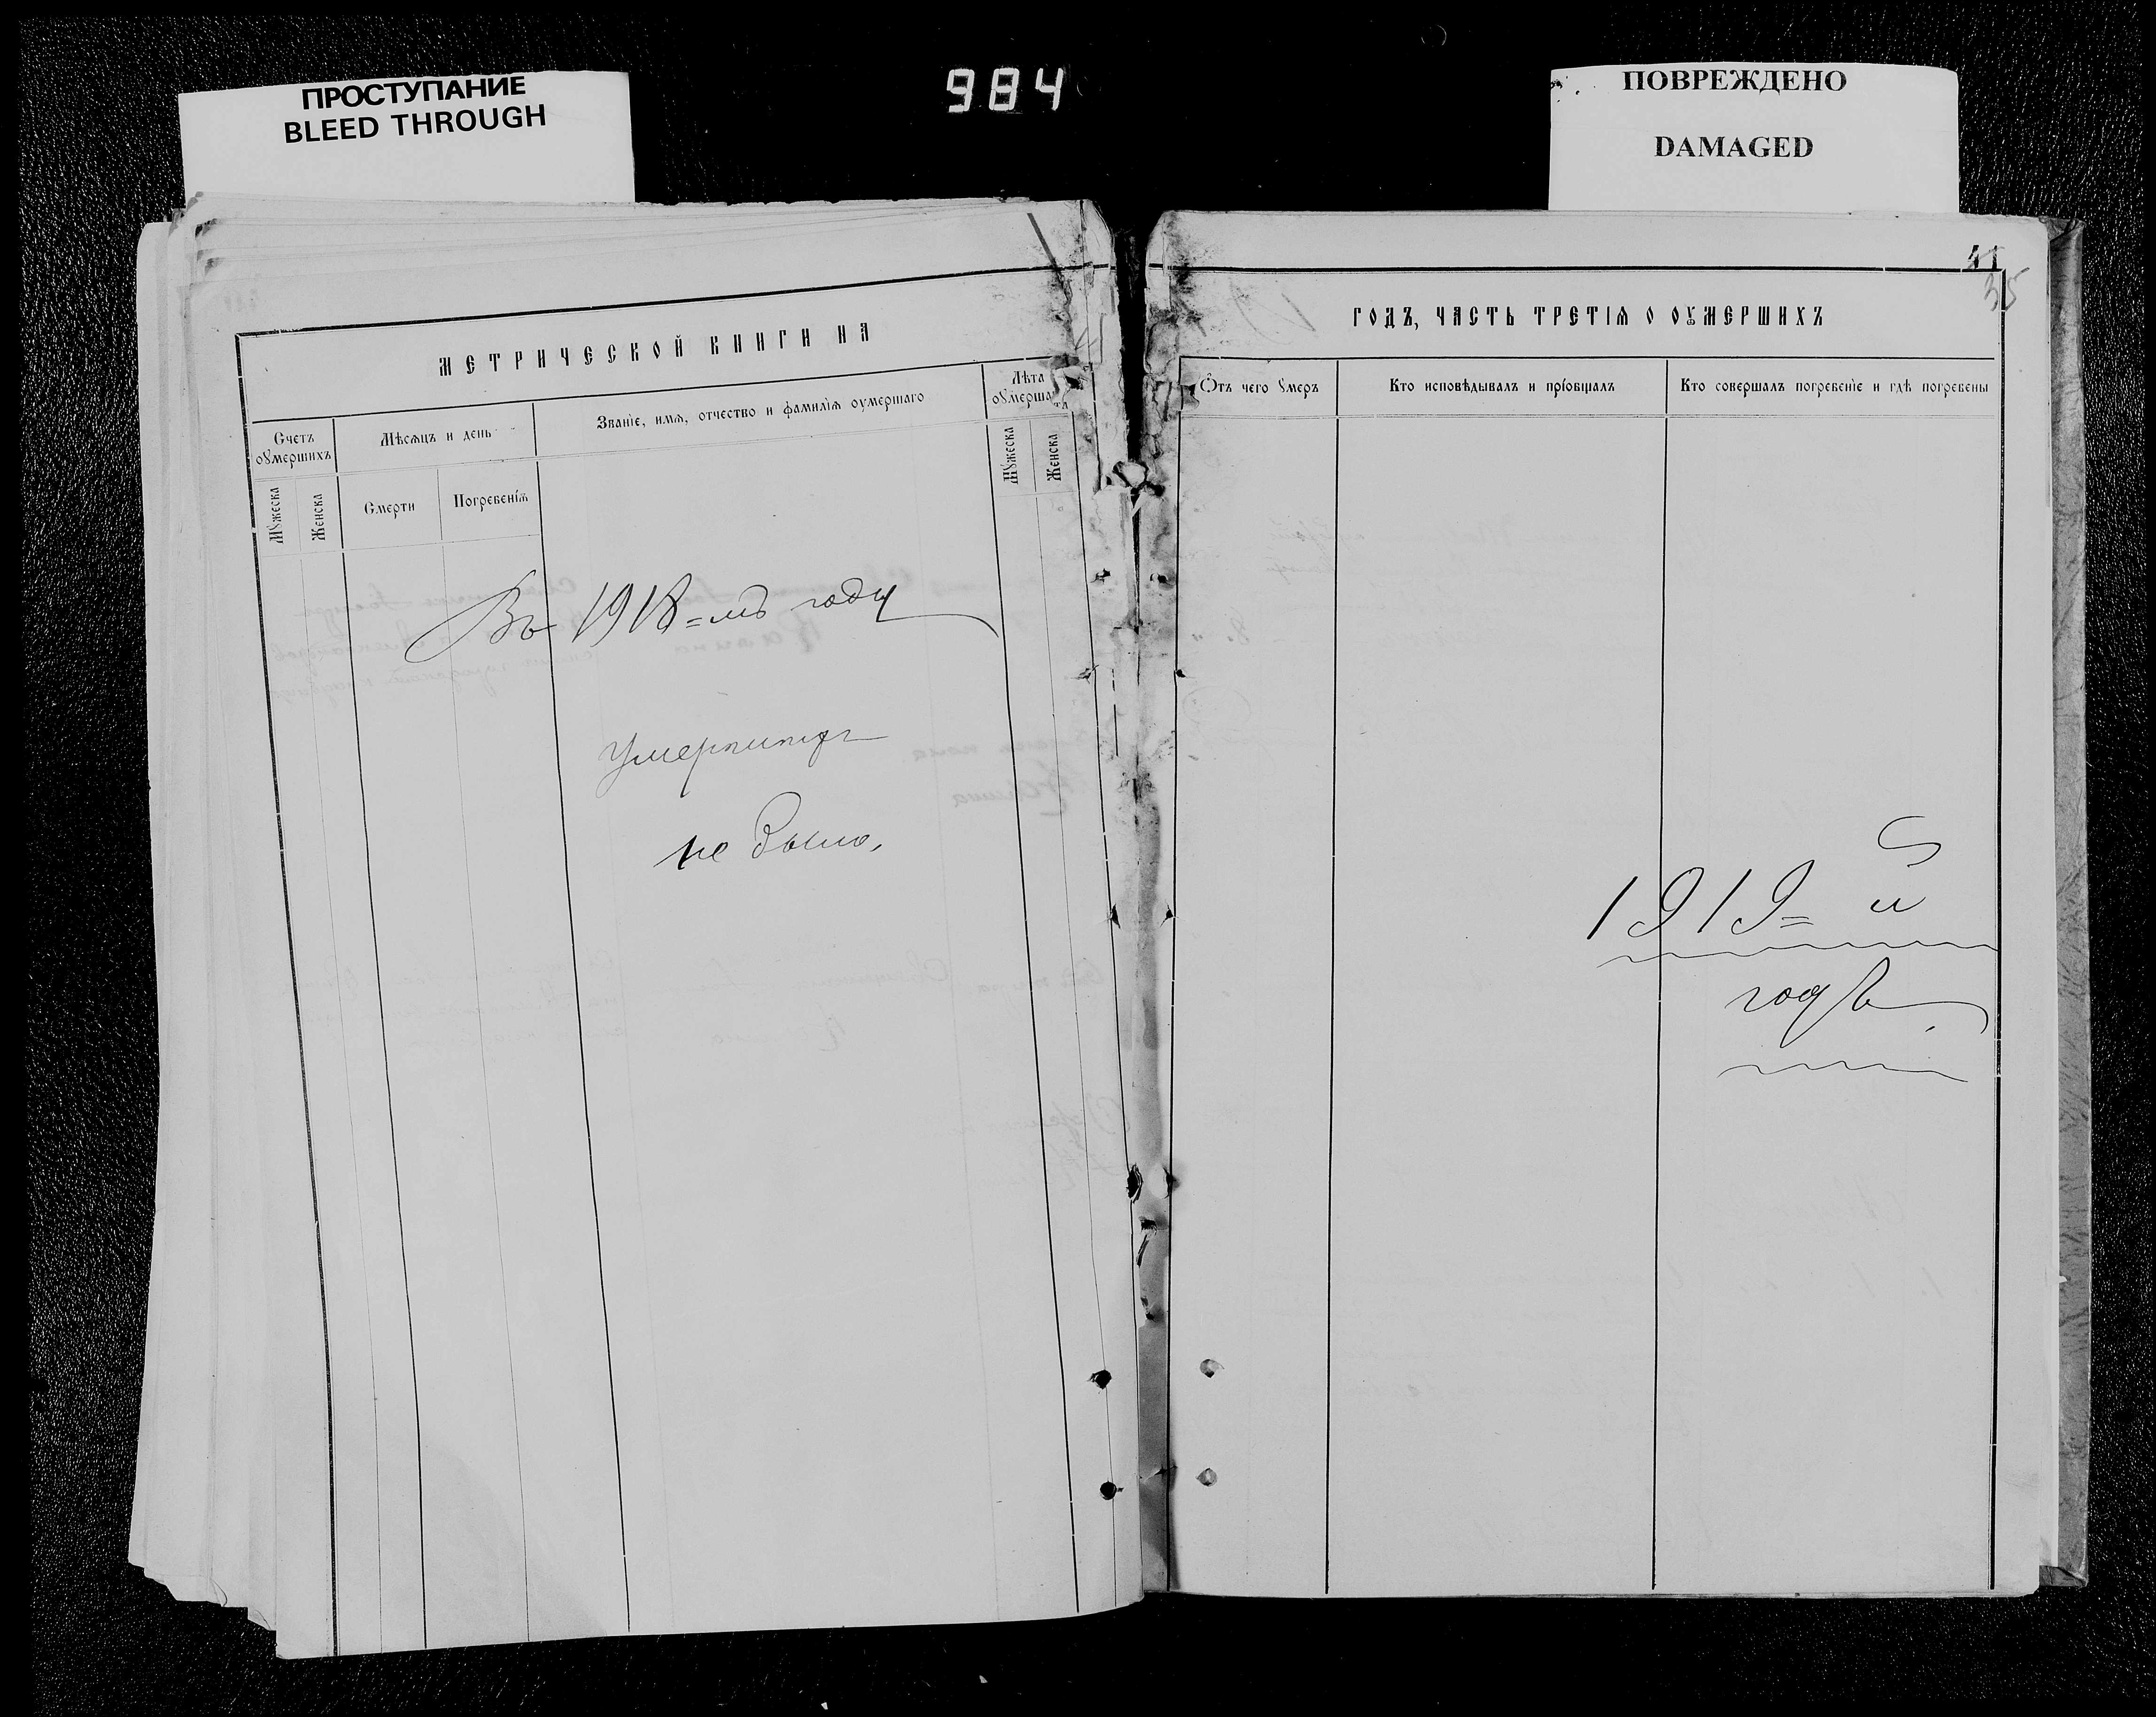 ПРОСТУПАНИЕ
BLEED THROUGH
984
ПОВРЕЖДЕНО
DAMAGED
МЕТРИЧЕСКОЙ КНИГИ НА
Счетъ
оумершихъ
Мѣсяцъ и день
Званіе, имя, отчество и фамилія оумершаго
Лѣта
оумерша
Мужеска
Женска
Смерти
Погребенія
Мужеска
Женска
Въ 1918=мъ году
Умершихъ
не было.
41
35
ГОДЪ, ЧАСТЬ ТРЕТІЯ О ОУМЕРШИХЪ
Ѿтъ чего умеръ
Кто исповѣдывалъ и пріобщалъ
Кто совершалъ погребеніе и гдѣ погребены
1919=й
годъ